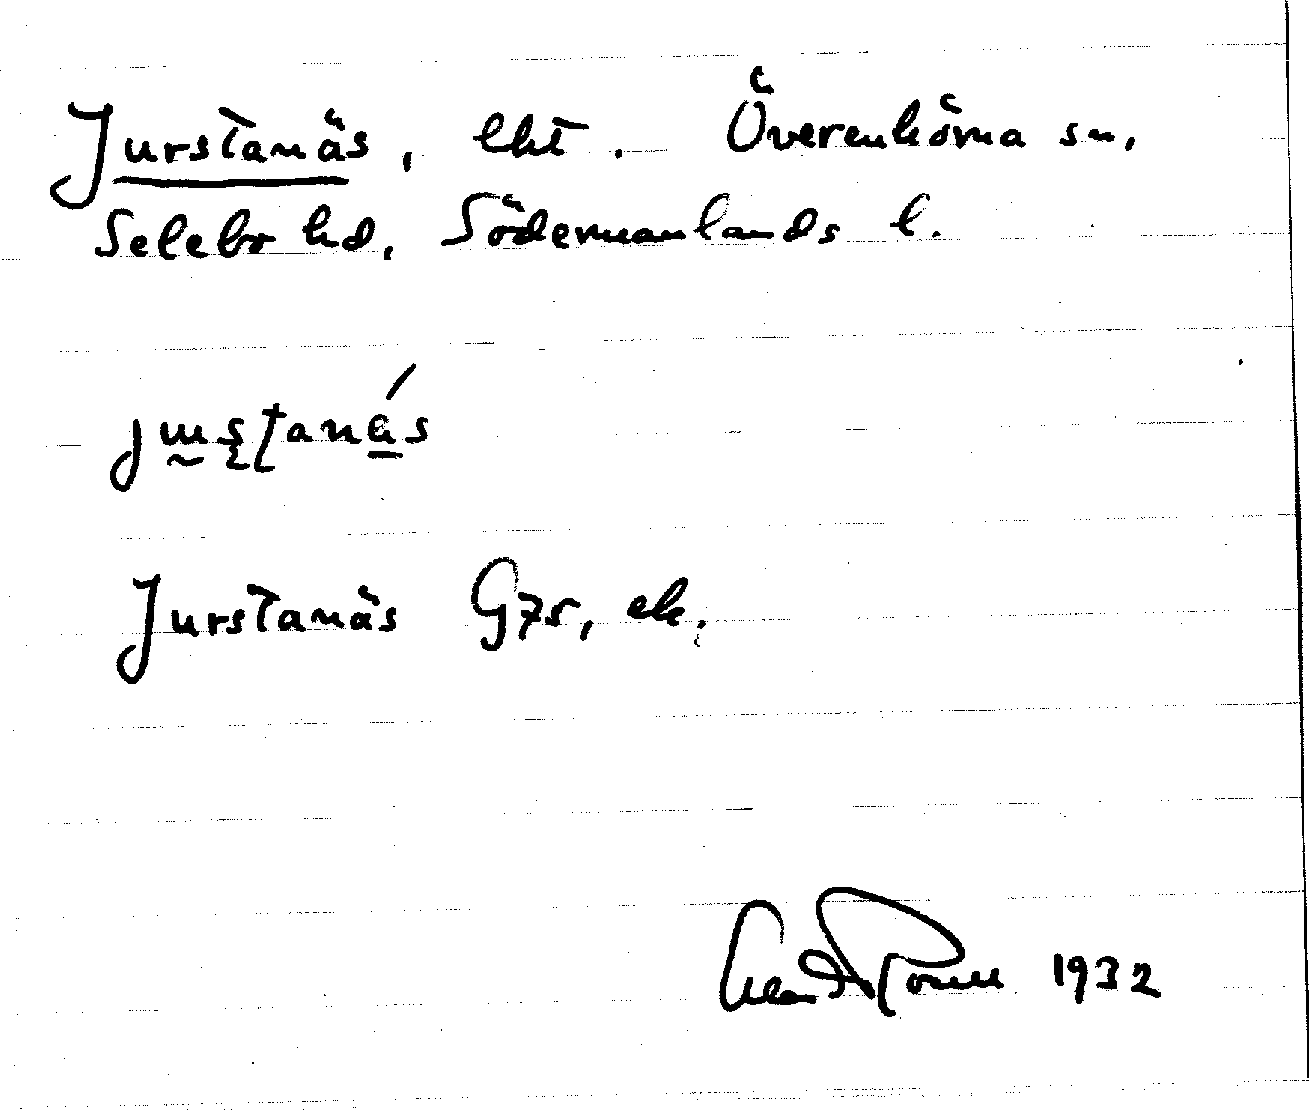 Jurstanäs, lht. Överenhörna sn,
Selebo hd, Södermanlands l.
Jurstanäs G75, ek.
1932